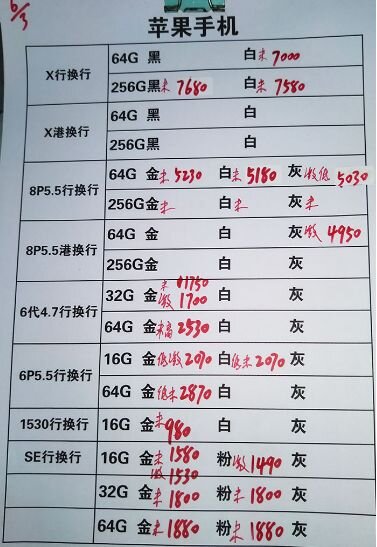 6/3
苹果手机
X行换行 64G 黑 白未7000
256G黑未7680 白未7580
X港换行 64G 黑 白
256G黑 白
8P5.5行换行 64G 金未5230 白未5180 灰激低5030
256G金未 白未 灰未
8P5.5港换行 64G 金 白 灰激4950
256G金 白 灰
6代4.7行换行 32G 金未1750激1700 白 灰
64G 金未高2530 白 灰
6P5.5行换行 16G 金低激2070 白低未2070 灰
64G 金低未2870 白 灰
1530行换行 16G 金未980 白 灰
SE行换行 16G 金未1580激1530 粉激1490 灰
32G 金未1800 粉未1800 灰
64G 金未1880 粉未1880 灰